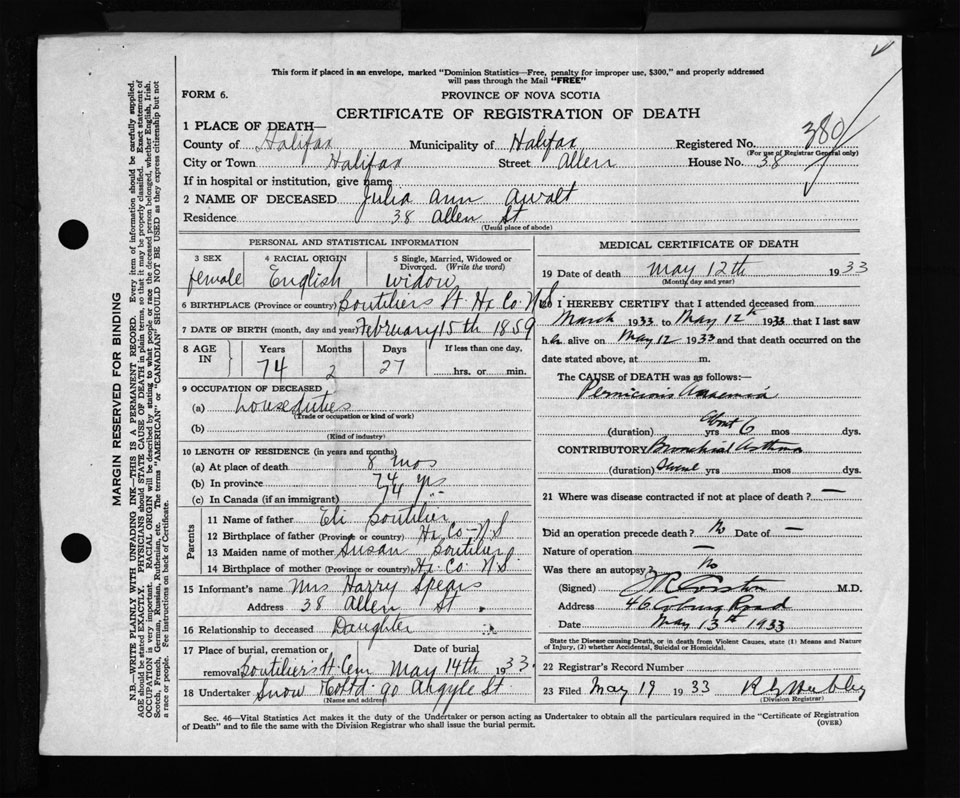 This form if placed in an envelope, marked "Dominion Statistics—Free, penalty for improper use, $300," and properly addressed
will pass through the Mail "FREE"
FORM 6.
PROVINCE OF NOVA SCOTIA
CERTIFICATE OF REGISTRATION OF DEATH
380
1 PLACE OF DEATH—
County of Halifax Municipality of Halifax Registered No.
(For use of Registrar General only)
City or Town Halifax Street Allen House No. 38
If in hospital or institution, give name
2 NAME OF DECEASED Julia Ann Awalt
Residence 38 Allen St
(Usual place of abode)
PERSONAL AND STATISTICAL INFORMATION
3 SEX 4 RACIAL ORIGIN 5 Single, Married, Widowed or Divorced. (Write the word)
female English widow
6 BIRTHPLACE (Province or country) Boutiliers Pt. Hx Co. N.S
7 DATE OF BIRTH (month, day and year) February 15th 1859
8 AGE IN Years Months Days If less than one day,
74 2 27 hrs. or min.
9 OCCUPATION OF DECEASED
(a) house duties
(Trade or occupation or kind of work)
(b)
(Kind of industry)
10 LENGTH OF RESIDENCE (in years and months)
(a) At place of death 8 mos
(b) In province 74 yrs
(c) In Canada (if an immigrant) 74 "
Parents
11 Name of father Eli Boutilier
12 Birthplace of father (Province or country) Hx Co - N S
13 Maiden name of mother Susan Boutilier
14 Birthplace of mother (Province or country) Hx. Co. N.S.
15 Informant's name Mrs Harry Spears
Address 38 Allen St.
16 Relationship to deceased Daughter
17 Place of burial, cremation or removal Date of burial
Boutilier's Pt Cem May 14th 1933.
18 Undertaker Snow & Co Ltd. 90 Argyle St
(Name and address)
MEDICAL CERTIFICATE OF DEATH
19 Date of death May 12th 1933
(Month, day and year)
20 I HEREBY CERTIFY that I attended deceased from
March 1933 to May 12th 1933 that I last saw
her alive on May 12 1933 and that death occurred on the
date stated above, at m.
The CAUSE of DEATH was as follows:—
Pernicious Anaemia
(duration) About 6 yrs mos dys.
CONTRIBUTORY Bronchial Asthma
(duration) yrs mos dys.
21 Where was disease contracted if not at place of death? —
Did an operation precede death? No Date of —
Nature of operation —
Was there an autopsy? No
(Signed) M.D.
Address 46 Coburg Road
Date May 13th 1933
State the Disease causing Death, or in death from Violent Causes, state (1) Means and Nature
of Injury, (2) whether Accidental, Suicidal or Homicidal.
22 Registrar's Record Number
23 Filed May 19 1933
(Division Registrar)
Sec. 46—Vital Statistics Act makes it the duty of the Undertaker or person acting as Undertaker to obtain all the particulars required in the "Certificate of Registration
of Death" and to file the same with the Division Registrar who shall issue the burial permit.
(OVER)
MARGIN RESERVED FOR BINDING
N.B.—WRITE PLAINLY WITH UNFADING INK—THIS IS A PERMANENT RECORD. Every item of information should be carefully supplied.
AGE should be stated EXACTLY. PHYSICIANS should STATE CAUSE OF DEATH in plain terms, so that it may be properly classified. Exact statement of
OCCUPATION is very important. RACIAL ORIGIN will be described by stating to what people or race the deceased person belonged, whether English, Irish,
Scotch, French, German, Russian, Ruthenian, etc. The terms "AMERICAN" or "CANADIAN" SHOULD NOT BE USED as they express citizenship but not
a race or people. See instructions on back of Certificate.